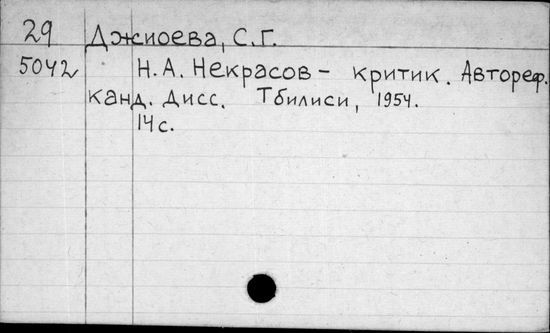 29 Джиоева, С.Г.
5042 Н.А. Некрасов - критик. Автореф.
канд. дисс. Тбилиси, 1954.
14 с.